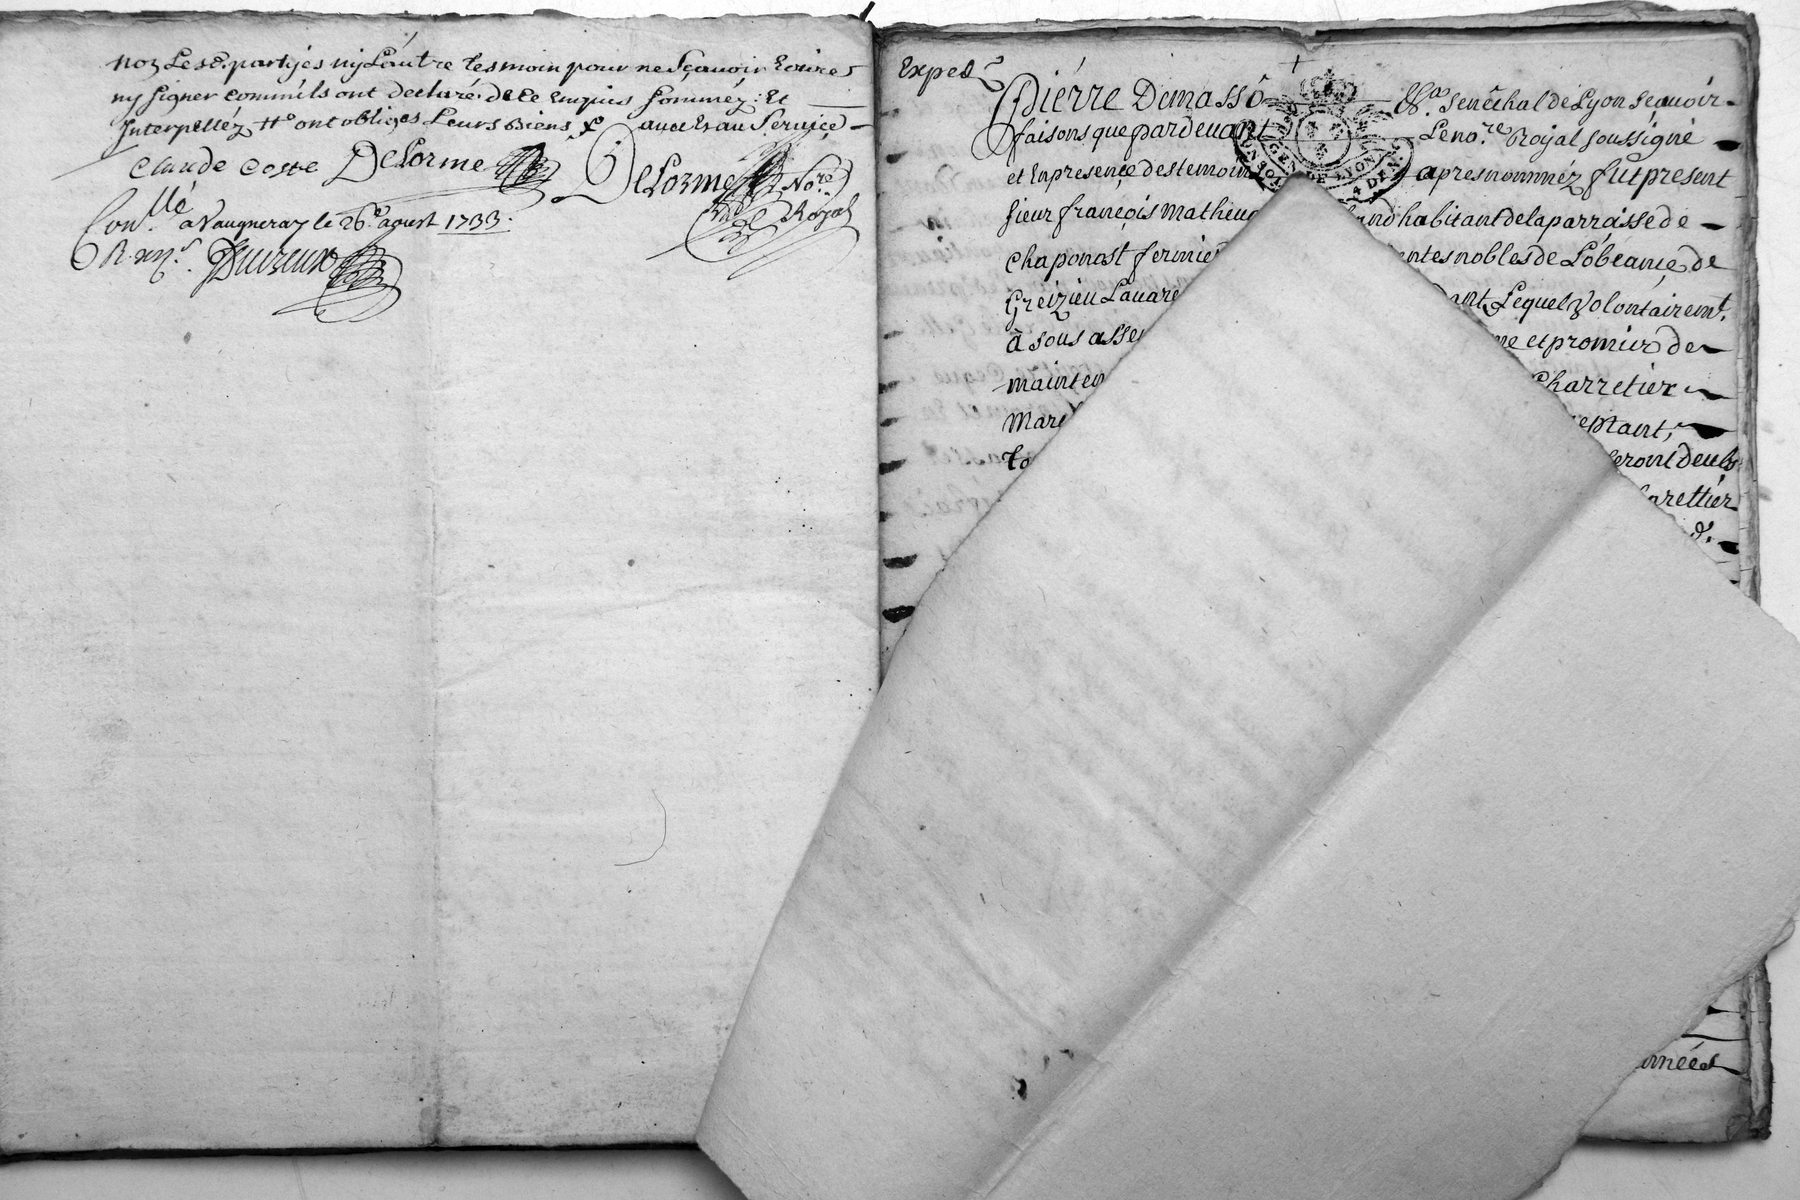 non Lesd. partyes ny Lautre tesmoin pour ne Sçavoir Ecrire
ny signer comm'ils ont declaré de ce Enquis sommez Et
Interpellez tt. ont obliges Leurs Biens & aux Service
Claude Coste DeLorme DeLorme No.re
Royal
Con.llé a Vaugneray le 26.e aoust 1733.
R.
Exped.e
Pierre Demasso &a. Senéchal de Lyon Sçavoir
faisons que pardevant Le no.re Royal soussigné
et En presence des temoin apres nommez fut present
sieur françois Matheu habitant de la parroisse de
Chaponost fermie entes nobles de L'obeance de
Greizieu Lavare ant, Lequel volontairemt.
à sous asse me et promier de
mainten Charretier
Mare eptant,
to seront deub
arettier
&.
année